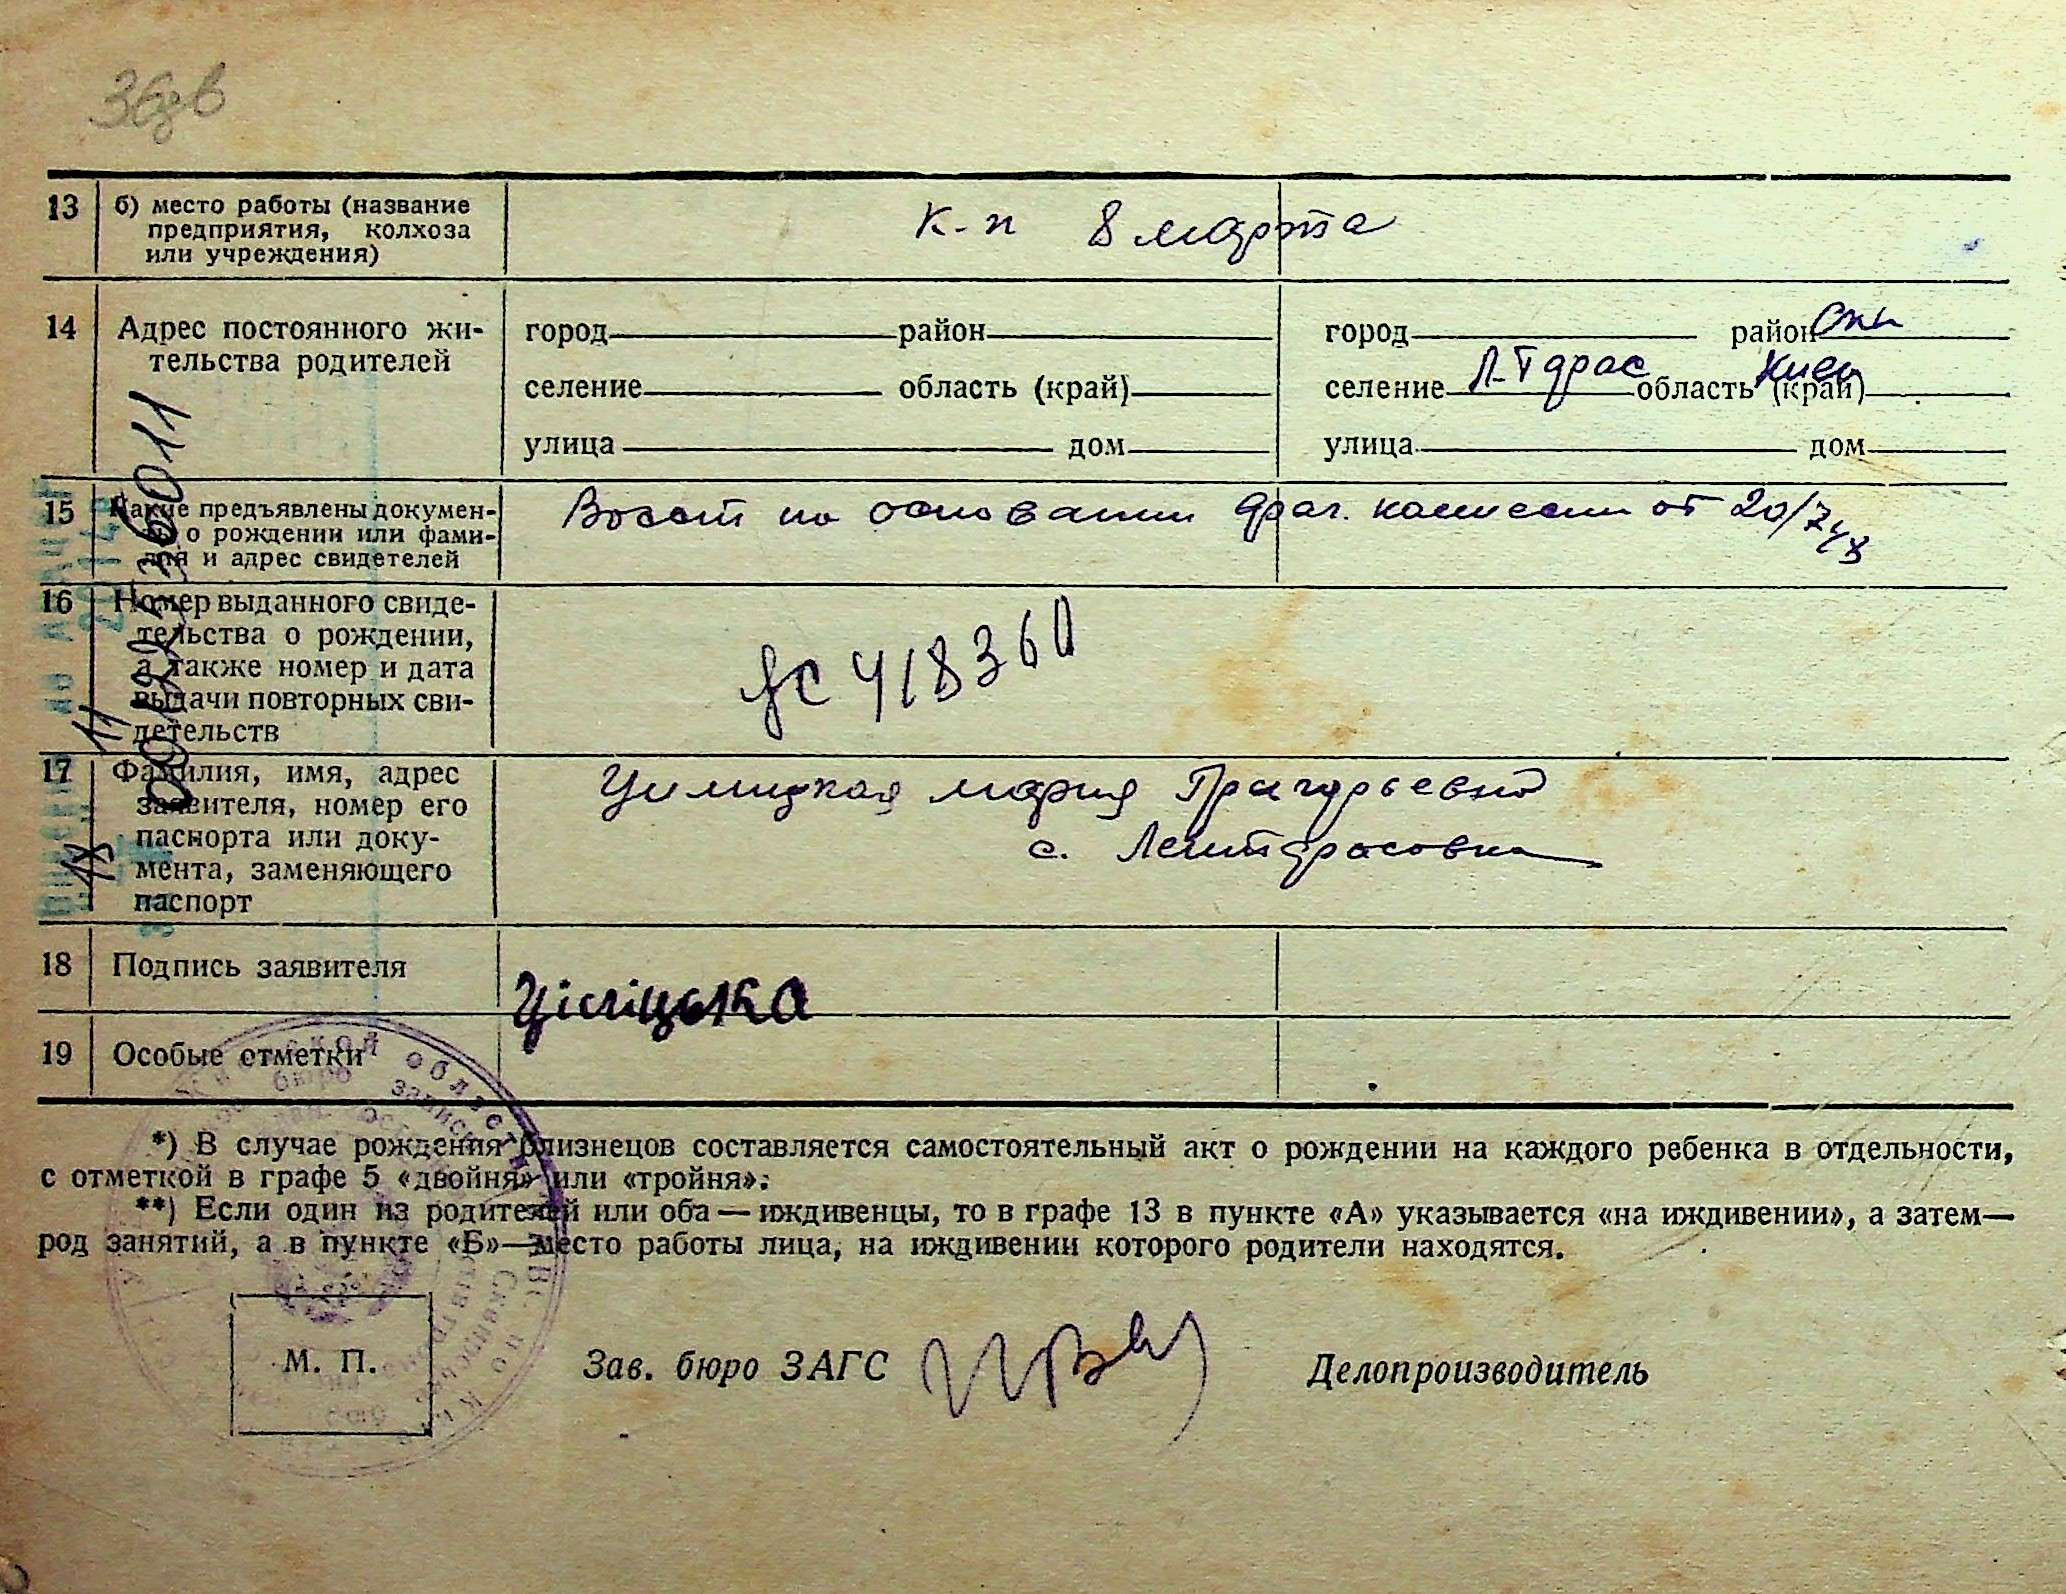 13 б) место работы (название
предприятия, колхоза
или учреждения)
к-п 8 марта
14 Адрес постоянного жи-
тельства родителей
город район
селение область (край)
улица дом
город район Скв
селение Л-Тарас область (край) Киев
улица дом
15 Какие предъявлены докумен-
ты о рождении или фами-
лия и адрес свидетелей
Восст на основании врач. комиссии от 20/7 48
16 Номер выданного свиде-
тельства о рождении,
а также номер и дата
выдачи повторных сви-
детельств
418360
17 Фамилия, имя, адрес
заявителя, номер его
паспорта или доку-
мента, заменяющего
паспорт
Мария Григорьевна
с.
18 Подпись заявителя
Цілицька
19 Особые отметки
*) В случае рождения близнецов составляется самостоятельный акт о рождении на каждого ребенка в отдельности,
с отметкой в графе 5 «двойня» или «тройня».
**) Если один из родителей или оба — иждивенцы, то в графе 13 в пункте «А» указывается «на иждивении», а затем—
род занятий, а в пункте «Б»—место работы лица, на иждивении которого родители находятся.
М. П.
Зав. бюро ЗАГС
Делопроизводитель